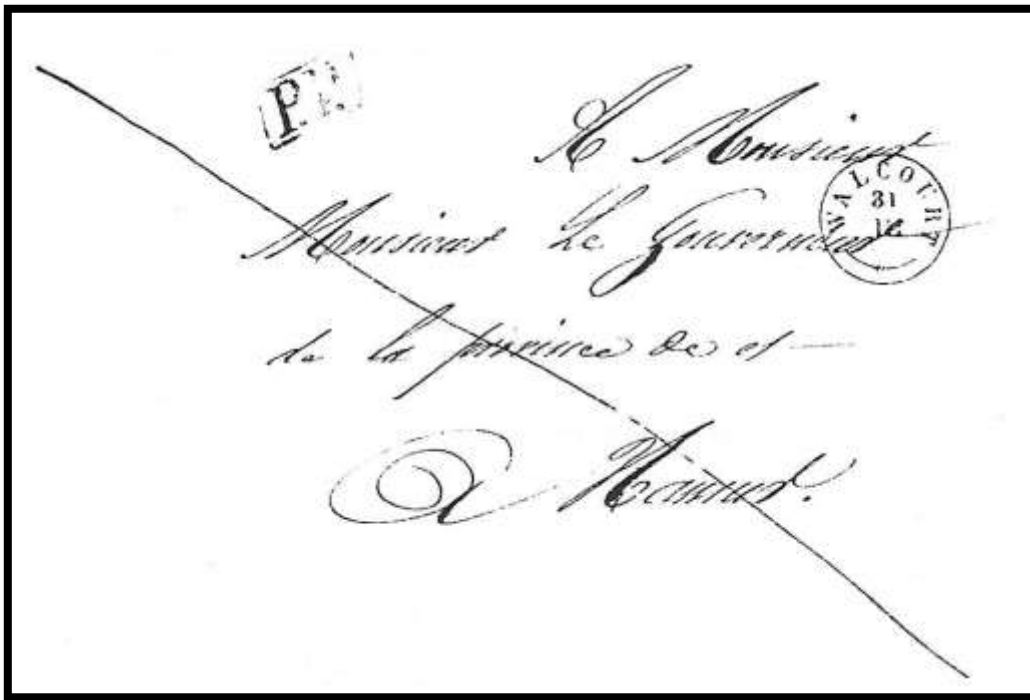 P.P.
A Monsieur
WALCOURT
31
12
Monsieur Le Gouverneur
de la province de et
A Namur.